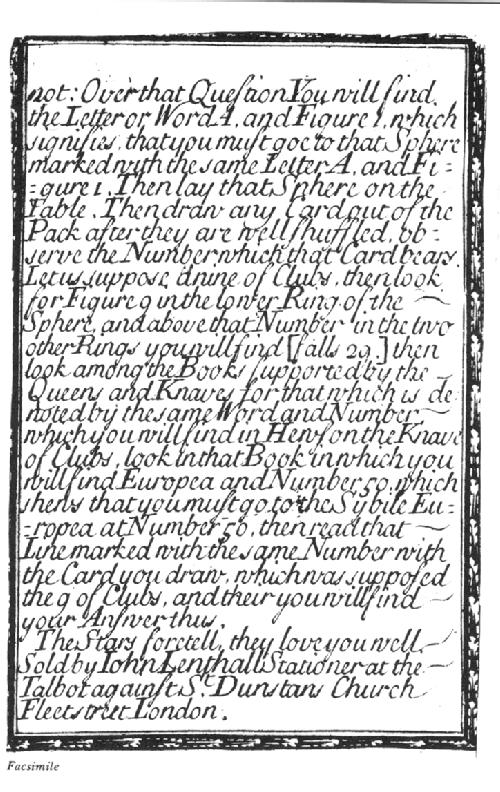 not: Over that Question You will find,
the Letter or Word A, and Figure 1, which
signifies, that you must goe to that Sphere
marked with the same Letter A, and Fi =
= gure 1. Then lay that Sphere on the
Table. Then draw any Card out of the
Pack after they are well shuffled, ob =
serve the Number which that Card bears.
Let us suppose it nine of Clubs, then look
for Figure 9 in the lower Ring of the
Sphere, and above that Number in the two
other Rings you will find [falls 29.] then
look among the Books supported by the
Queens and Knaves for that which is de
noted by the same Word and Number
which you will find in Hews on the Knave
of Clubs, look in that Book in which you
will find Europea and Number 50, which
shews that you must go to the Sybile Eu =
= ropea at Number 50, then read that
Line marked with the same Number with
the Card you draw, which was supposed
the 9 of Clubs, and their you will find
your Answer thus.
The Stars foretell, they love you well.
Sold by Iohn Lenthall Stationer at the
Talbot against St. Dunstans Church
Fleetstreet London.
Facsimile